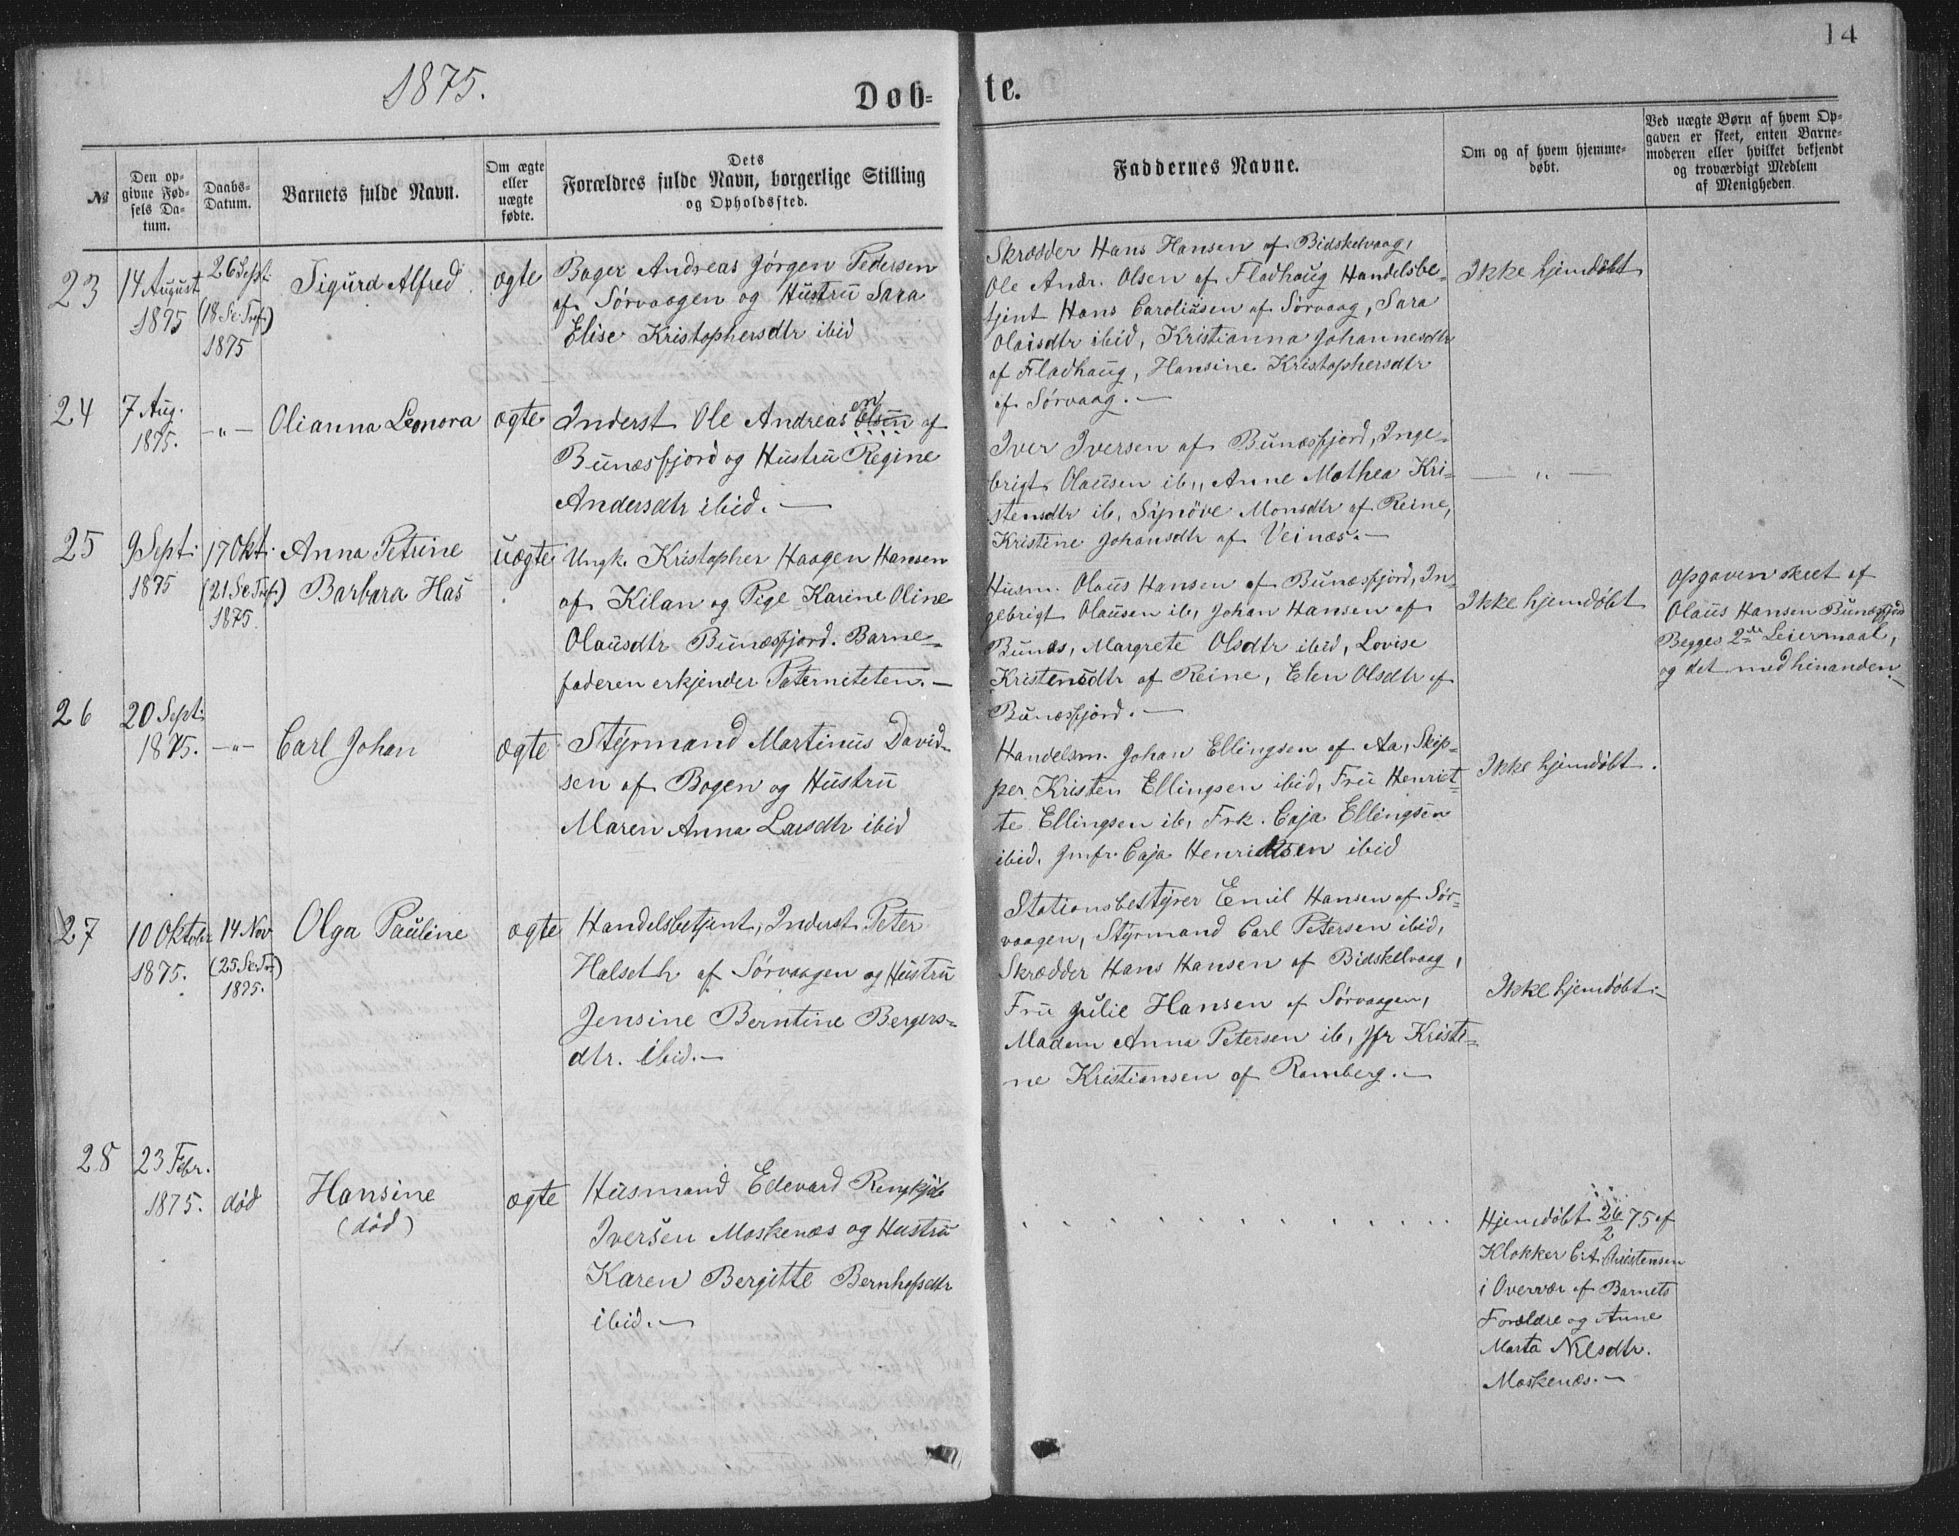 14
1875.
Døb-
te.
№
Den op-
givne Fød-
sels Da-
tum.
Daabs-
Datum.
Barnets fulde Navn.
Om ægte
eller
uægte
fødte.
Dets
Forældres fulde Navn, borgerlige Stilling
og Opholdssted.
Faddernes Navne.
Om og af hvem hjemme-
døbt.
Ved uægte Børn af hvem Op-
gaven er skeet, enten Barne-
moderen eller hvilket bekjendt
og troværdigt Medlem
af Menigheden.
23
14 August
1875
26 Sept.
(18 Se. Tref.)
1875
Sigurd Alfred
ægte
Bager Andreas Jørgen Pedersen
af Sørvaagen og Hustru Sara
Elise Kristophersdtr ibid
Skrædder Hans Hansen af Bidskelvaag,
Ole Andr. Olsen af Fladhaug Handelsbe-
tjint Hans Caroliusen af Sørvaag, Sara
Olaisdtr ibid, Kristianna Johannesdtr
af Fladhaug, Hansine Kristophersdtr
af Sørvaag. —
Ikke hjemdøbt
24
7 Aug.
1875.
— " —
Olianna Leonora
ægte
Inderst Ole Andreas Olsen af
Bunæsfjord og Hustru Regine
Andersdtr ibid. —
Iver Iversen af Bunæsfjord, Inge-
brigt Olausen ib., Anne Mathea Kri-
stensdtr ib, Synöve Monsdtr af Reine,
Kristine Johansdtr af Veinæs. —
— " —
25
9 Sept.
1875
17 Okt.
(21 Se. Tref.)
1875.
Anna Petrine
Barbara Has
uægte
Ungk. Kristopher Haagen Hansen
af Kilan og Pige Karine Oline
Olausdtr Bunæsfjord. Barne-
faderen erkjender Paterniteten. —
Husm. Olaus Hansen af Bunæsfjord, In-
gebrigt Olausen ib, Johan Hansen af
Bunæs, Margrete Olsdtr ibid, Lovise
Kristensdtr af Reine, Elen Olsdtr af
Bunæsfjord. —
Ikke hjemdøbt
Opgaven skeet af
Olaus Hansen Bunæsfjord
Begges 2de Leiermaal,
og det med hinanden. —
26
20 Sept.
1875.
— " —
Carl Johan
ægte
Styrmand Martinus David-
sen af Bogen og Hustru
Maren Anna Larsdtr ibid
Handelsm. Johan Ellingsen af Aa, Skip-
per Kristen Ellingsen ibid, Fru Henriet-
te Ellingsen ib, Frk. Caja Ellingsen
ibid. Jmfr. Caja Henriksen ibid
Ikke hjemdøbt.
27
10 Oktober
1875.
14 Nov
(25 Se. Tref.)
1875.
Olga Pauline
ægte
Handelsbetjent, Inderst Peter
Halseth af Sørvaagen og Hustru
Jensine Berntine Bergers-
dtr. ibid. —
Stationsbestyrer Emil Hansen af Sør-
vaagen, Styrmand Carl Petersen ibid,
Skrædder Hans Hansen af Bidskelvaag,
Fru Julie Hansen af Sørvaagen,
Madam Anna Petersen ib, Jfr Kristi-
ne Kristiansen af Ramberg. —
Ikke hjemdøbt. —
28
23 Febr.
1875.
død
Hansine
(død)
ægte
Husmand Edevard
Iversen Moskenæs og Hustru
Karen Bergitte Bernhofsdtr
ibid. —
Hjemdøbt 26/2 75 af
Klokker C. A. Christensen
i Overvær af Barnets
Forældre og Anne
Marta Nilsdtr.
Moskenæs. —